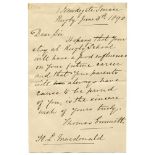 1 Newdegate Street
Rugby June 8th 1890
Dear Sir
I hope that your
stay at Rugby School
will have a good influence
on your future career
and that your parents
will always have
cause to be proud
of you, is the sincere
wish of yours truly,
Thomas Emmett
H. L. Macdonald